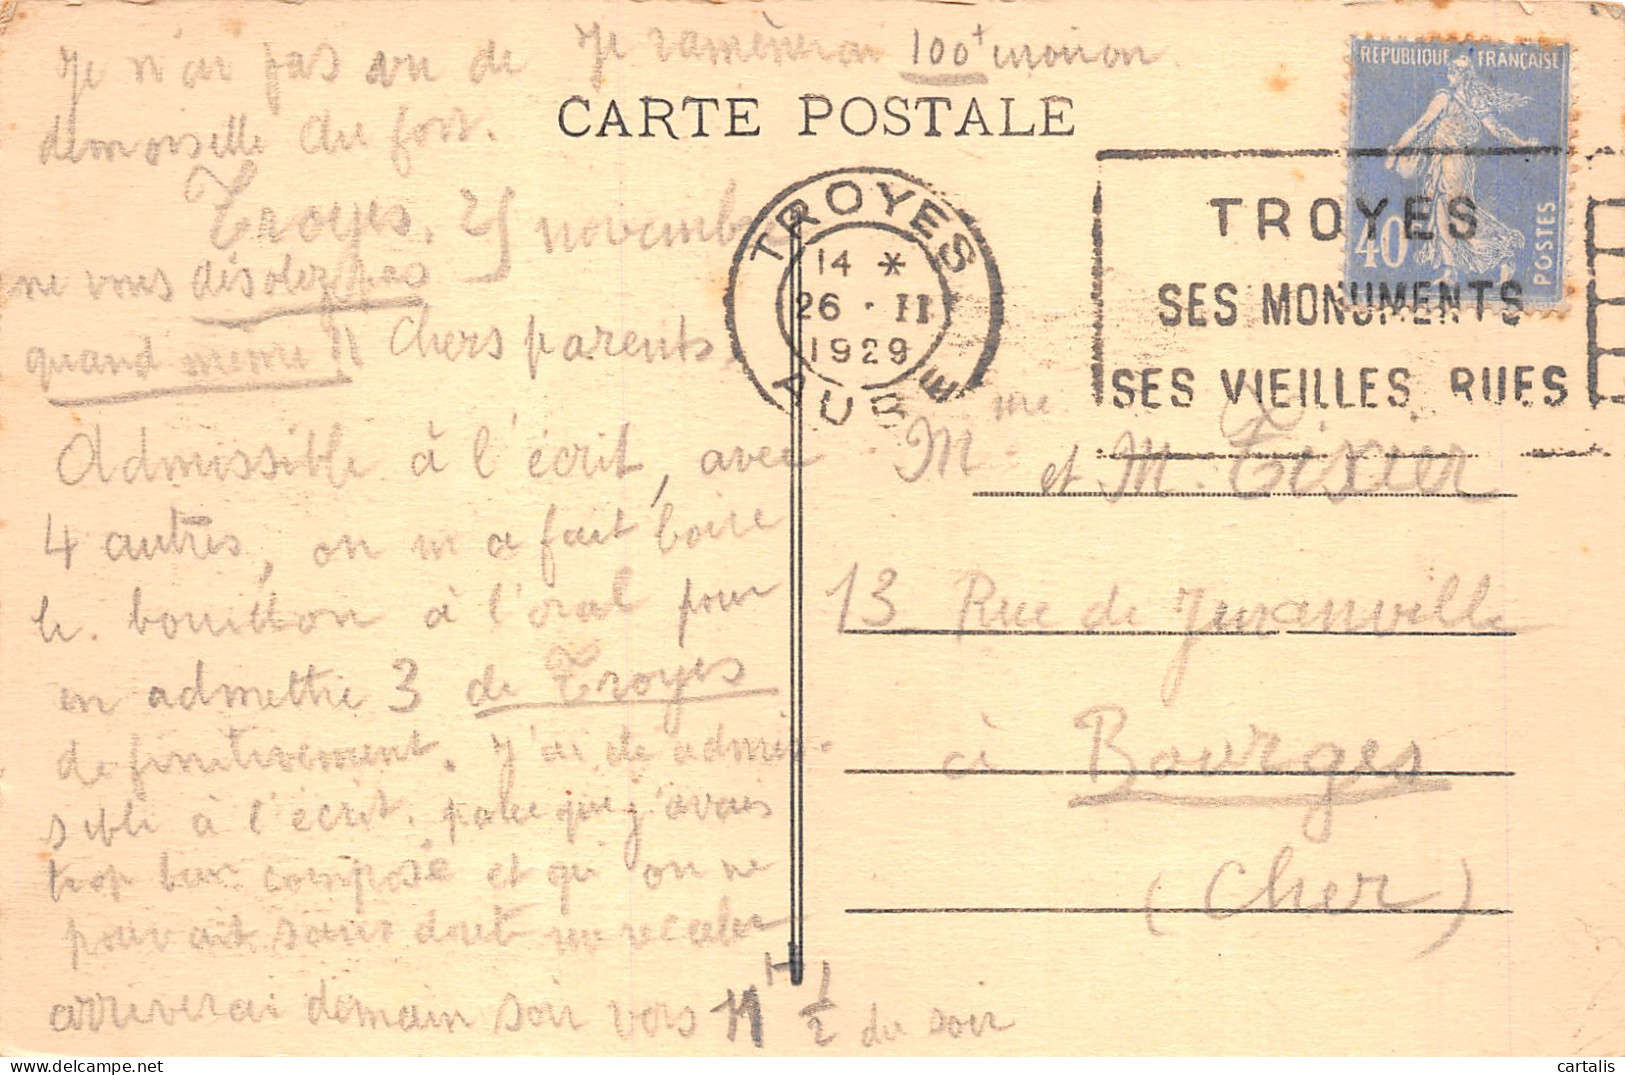 Je n'ai pas vu de
demoiselle du fort.
Je ramènerai 100+ environ
CARTE POSTALE
REPUBLIQUE FRANÇAISE
40
POSTES
TROYES
14 *
26 · II
1929
AUBE
TROYES
SES MONUMENTS
SES VIEILLES RUES
Troyes, 25 novembre
ne vous désolez pas
quand même !!
Chers parents,
Admissible à l'écrit, avec
4 autres, on m'a fait boire
le bouillon à l'oral pour
en admettre 3 de Troyes
définitivement. J'ai été admis-
sible à l'écrit, parce que j'avais
trop bien composé et qu'on ne
pouvait sans doute me recaler
arriverai demain soir vers 11H 1/2 du soir
Mme et M. Tixier
13 Rue de Juranville
à Bourges
(Cher)
© cartalis
delcampe.net